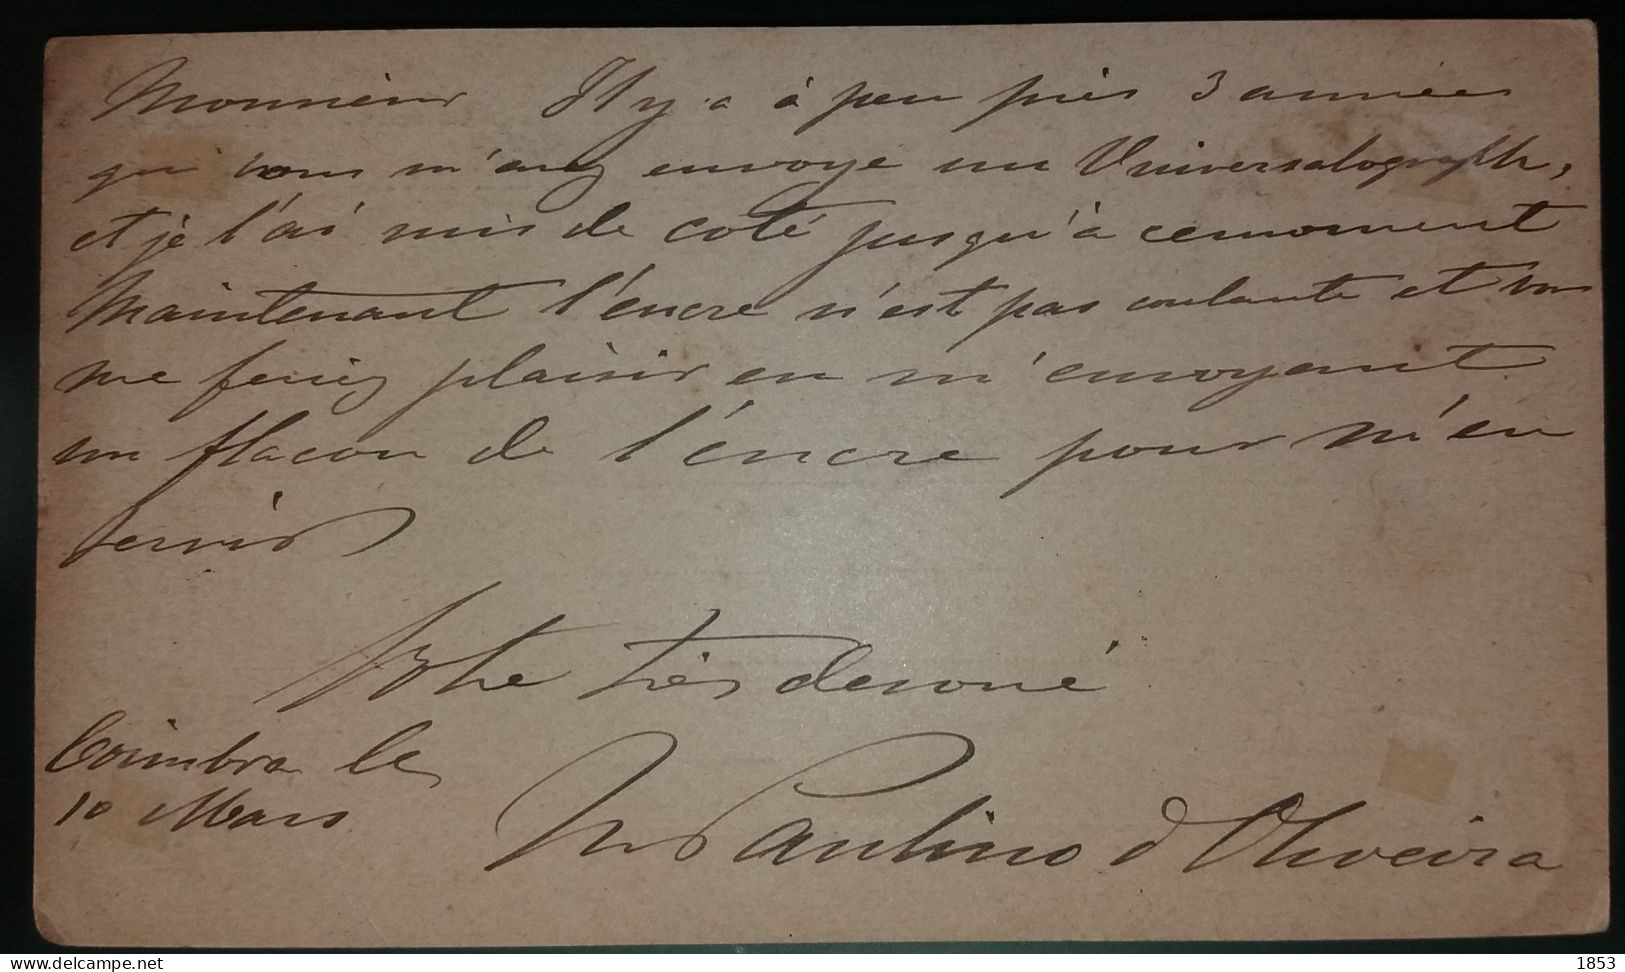 Monsieur Il y a à peu près 3 années
qui vous m'avez envoye un Universalograph,
et je l'ai mis de coté jusqu'à ce moment
Maintenant l'encre n'est pas coulante et vous
me feriez plaisir en m'envoyant
un flacon de l'encre pour m'en
servir
Votre très devoué
Coimbra le
10 Mars
Paulino d'Oliveira
delcampe.net
1853